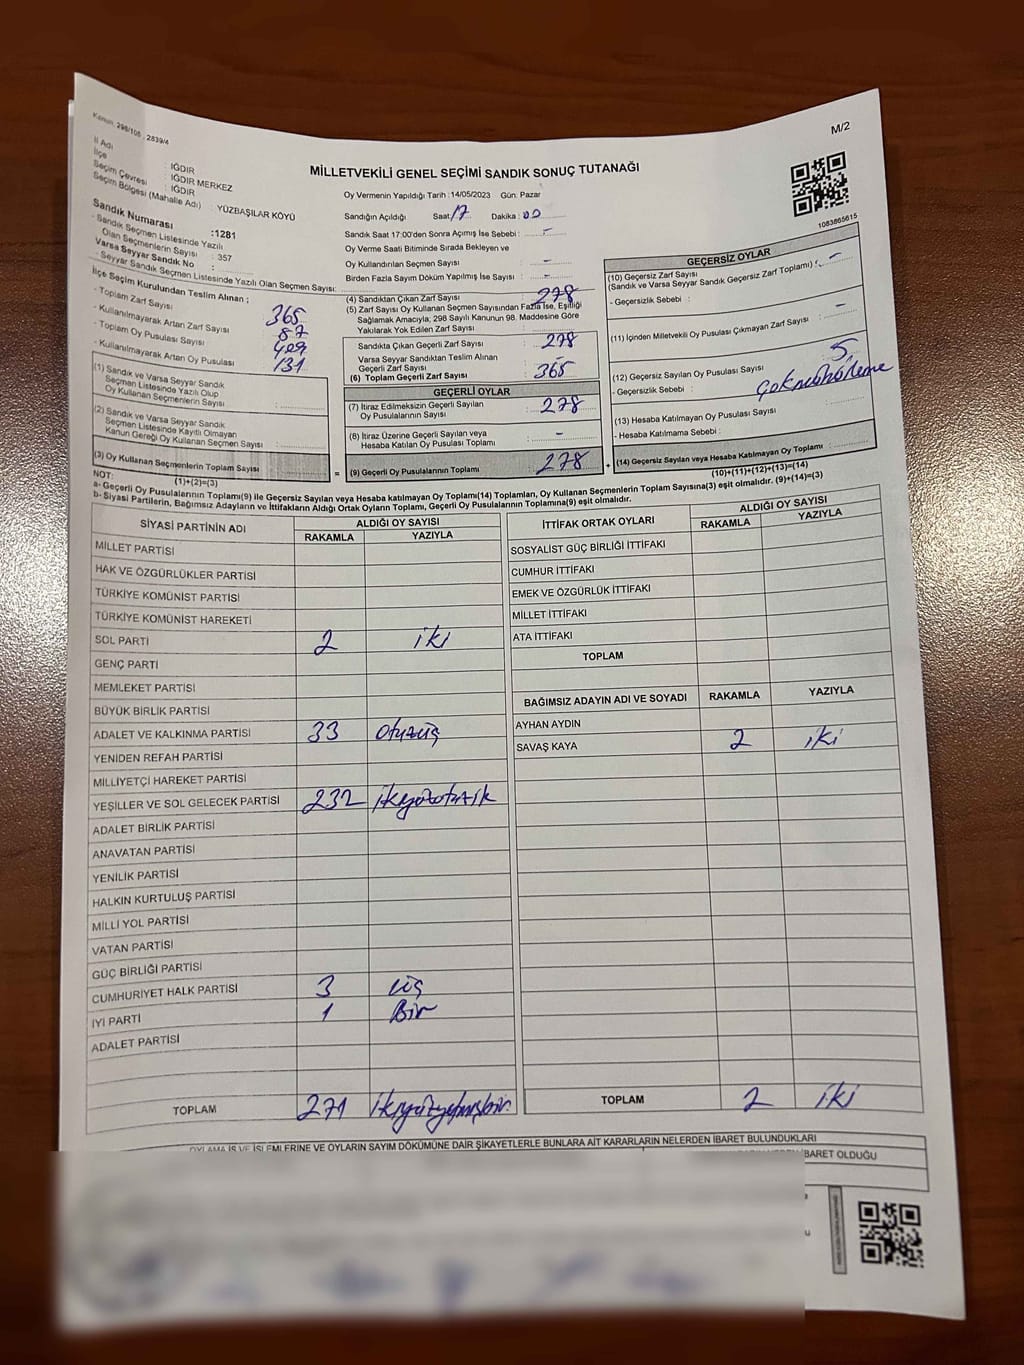 Kanun: 298/105 , 2839/4
M/2
İl Adı : IĞDIR
İlçe : IĞDIR MERKEZ
Seçim Çevresi : IĞDIR
Seçim Bölgesi (Mahalle Adı) : YÜZBAŞILAR KÖYÜ
Sandık Numarası :1281
- Sandık Seçmen Listesinde Yazılı
Olan Seçmenlerin Sayısı : 357
Varsa Seyyar Sandık No :
- Seyyar Sandık Seçmen Listesinde Yazılı Olan Seçmen Sayısı:
İlçe Seçim Kurulundan Teslim Alınan ;
- Toplam Zarf Sayısı : 365
- Kullanılmayarak Artan Zarf Sayısı : 87
- Toplam Oy Pusulası Sayısı : 409
- Kullanılmayarak Artan Oy Pusulası : 131
(1) Sandık ve Varsa Seyyar Sandık
Seçmen Listesinde Yazılı Olup
Oy Kullanan Seçmenlerin Sayısı :
(2) Sandık ve Varsa Seyyar Sandık
Seçmen Listesinde Kayıtlı Olmayan
Kanun Gereği Oy Kullanan Seçmen Sayısı :
(3) Oy Kullanan Seçmenlerin Toplam Sayısı
(1)+(2)=(3)
MİLLETVEKİLİ GENEL SEÇİMİ SANDIK SONUÇ TUTANAĞI
Oy Vermenin Yapıldığı Tarih : 14/05/2023 Gün: Pazar
Sandığın Açıldığı Saat: 17 Dakika : 00
Sandık Saat 17:00'den Sonra Açımış İse Sebebi : -
Oy Verme Saati Bitiminde Sırada Bekleyen ve
Oy Kullandırılan Seçmen Sayısı : -
Birden Fazla Sayım Döküm Yapılmış İse Sayısı : -
(4) Sandıktan Çıkan Zarf Sayısı : 278
(5) Zarf Sayısı Oy Kullanan Seçmen Sayısından Fazla İse, Eşitliği
Sağlamak Amacıyla; 298 Sayılı Kanunun 98. Maddesine Göre
Yakılarak Yok Edilen Zarf Sayısı :
Sandıkta Çıkan Geçerli Zarf Sayısı : 278
Varsa Seyyar Sandıktan Teslim Alınan
Geçerli Zarf Sayısı : 365
(6) Toplam Geçerli Zarf Sayısı
GEÇERLİ OYLAR
(7) İtiraz Edilmeksizin Geçerli Sayılan
Oy Pusulalarının Sayısı : 278
(8) İtiraz Üzerine Geçerli Sayılan veya
Hesaba Katılan Oy Pusulası Toplamı : -
= (9) Geçerli Oy Pusulalarının Toplamı 278
1083865615
GEÇERSİZ OYLAR
(10) Geçersiz Zarf Sayısı
(Sandık ve Varsa Seyyar Sandık Geçersiz Zarf Toplamı) : -
- Geçersizlik Sebebi :
(11) İçinden Milletvekili Oy Pusulası Çıkmayan Zarf Sayısı : -
(12) Geçersiz Sayılan Oy Pusulası Sayısı : 5
- Geçersizlik Sebebi :
(13) Hesaba Katılmayan Oy Pusulası Sayısı
- Hesaba Katılmama Sebebi :
+ (14) Geçersiz Sayılan veya Hesaba Katılmayan Oy Toplamı
(10)+(11)+(12)+(13)=(14)
NOT:
a- Geçerli Oy Pusulalarının Toplamı(9) ile Geçersiz Sayılan veya Hesaba katılmayan Oy Toplamı(14) Toplamları, Oy Kullanan Seçmenlerin Toplam Sayısına(3) eşit olmalıdır. (9)+(14)=(3)
b- Siyasi Partilerin, Bağımsız Adayların ve İttifakların Aldığı Ortak Oyların Toplamı, Geçerli Oy Pusulalarının Toplamına(9) eşit olmalıdır.
SİYASİ PARTİNİN ADI ALDIĞI OY SAYISI
RAKAMLA YAZIYLA
MİLLET PARTİSİ
HAK VE ÖZGÜRLÜKLER PARTİSİ
TÜRKİYE KOMÜNİST PARTİSİ
TÜRKİYE KOMÜNİST HAREKETİ
SOL PARTİ 2 iki
GENÇ PARTİ
MEMLEKET PARTİSİ
BÜYÜK BİRLİK PARTİSİ
ADALET VE KALKINMA PARTİSİ 33 otuzüç
YENİDEN REFAH PARTİSİ
MİLLİYETÇİ HAREKET PARTİSİ
YEŞİLLER VE SOL GELECEK PARTİSİ 232
ADALET BİRLİK PARTİSİ
ANAVATAN PARTİSİ
YENİLİK PARTİSİ
HALKIN KURTULUŞ PARTİSİ
MİLLİ YOL PARTİSİ
VATAN PARTİSİ
GÜÇ BİRLİĞİ PARTİSİ
CUMHURİYET HALK PARTİSİ 3 üç
İYİ PARTİ 1 Bir
ADALET PARTİSİ
TOPLAM 271 ikiyüzyetmişbir
İTTİFAK ORTAK OYLARI ALDIĞI OY SAYISI
RAKAMLA YAZIYLA
SOSYALİST GÜÇ BİRLİĞİ İTTİFAKI
CUMHUR İTTİFAKI
EMEK VE ÖZGÜRLÜK İTTİFAKI
MİLLET İTTİFAKI
ATA İTTİFAKI
TOPLAM
BAĞIMSIZ ADAYIN ADI VE SOYADI RAKAMLA YAZIYLA
AYHAN AYDIN
SAVAŞ KAYA 2 iki
TOPLAM 2 iki
OYLAMA İŞ VE İŞLEMLERİNE VE OYLARIN SAYIM DÖKÜMÜNE DAİR ŞİKAYETLERLE BUNLARA AİT KARARLARIN NELERDEN İBARET BULUNDUKLARI
İBARET OLDUĞU